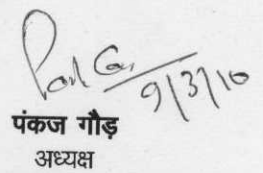 9/3/10
पंकज गौड़
अध्यक्ष